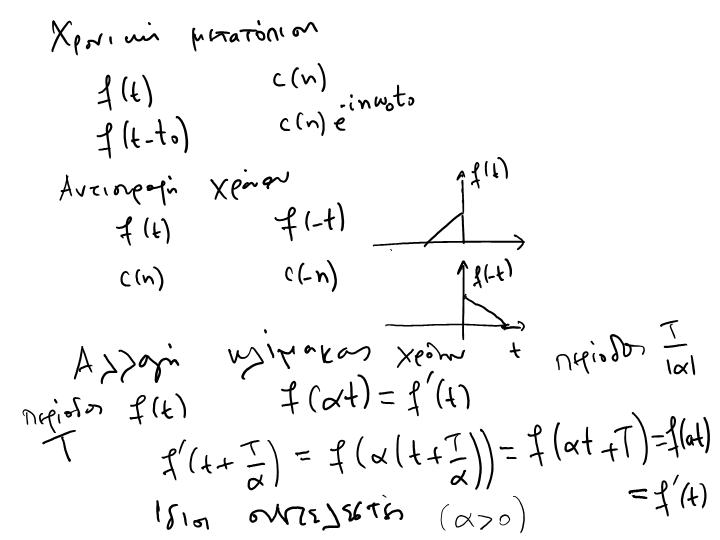 Χρονική μετατόπιση
f(t) c(n)
f(t-t₀) c(n) e^{-inω₀t₀}
Αντιστροφή χρόνου
f(t) f(-t)
c(n) c(-n)
f(t)
f(-t)
t
Αλλαγή κλίμακας χρόνου
περίοδος T/|α|
περίοδος T f(t) f(αt) = f'(t)
f'(t + T/α) = f(α(t + T/α)) = f(αt + T) = f(αt)
= f'(t)
Ίδιοι συντελεστές (α>0)